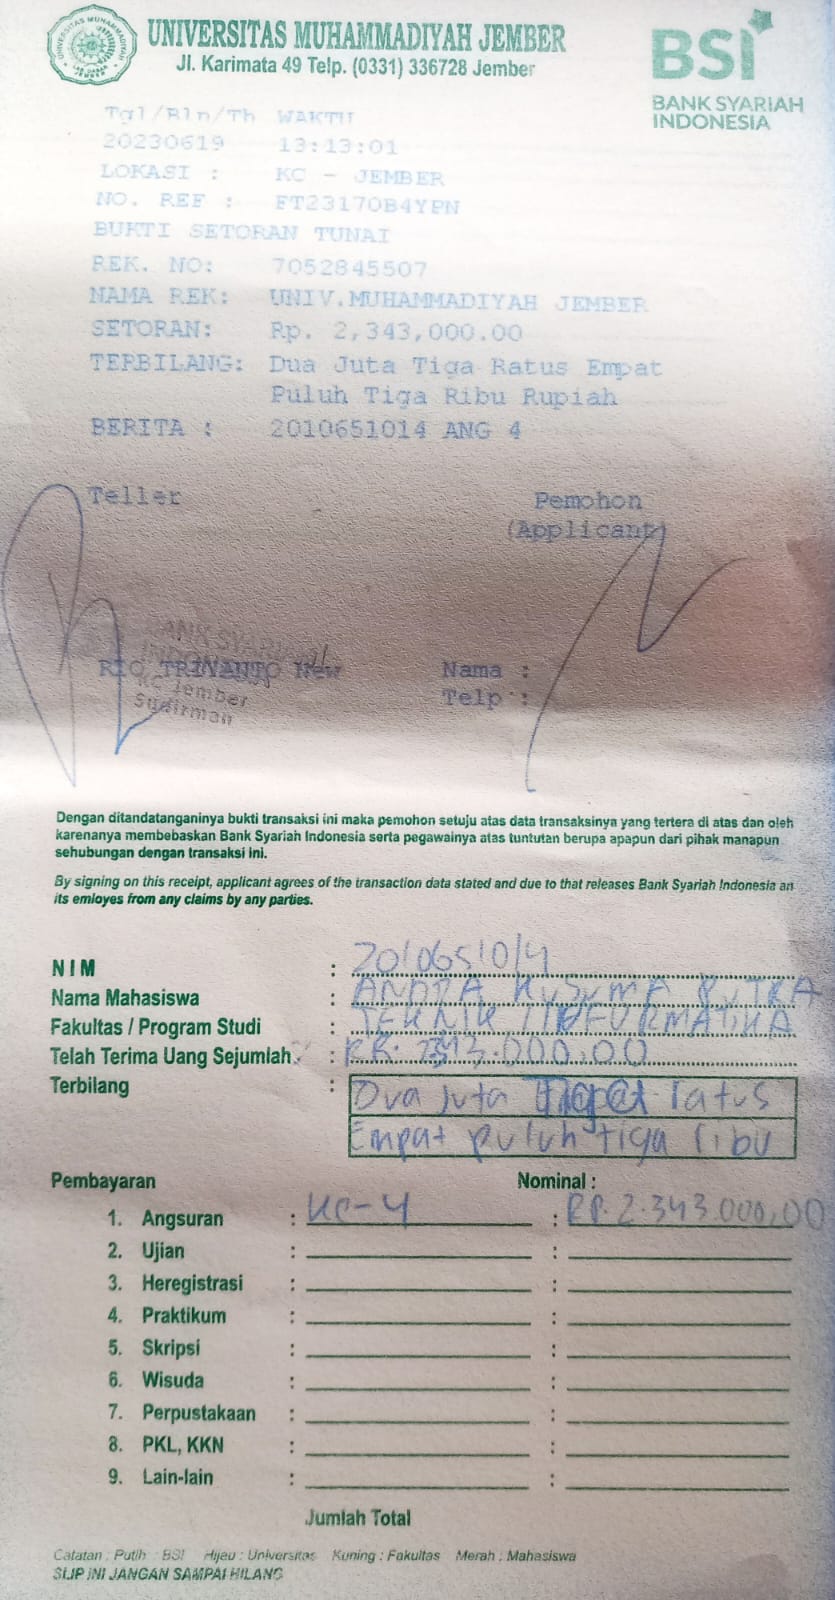 UNIVERSITAS MUHAMMADIYAH JEMBER
Jl. Karimata 49 Telp. (0331) 336728 Jember
BSI
BANK SYARIAH
INDONESIA
Tgl/Bln/Th WAKTU
20230619 13:13:01
LOKASI : KC - JEMBER
NO. REF : FT23170B4YPN
BUKTI SETORAN TUNAI
REK. NO: 7052845507
NAMA REK: UNIV.MUHAMMADIYAH JEMBER
SETORAN: Rp. 2,343,000.00
TERBILANG: Dua Juta Tiga Ratus Empat
Puluh Tiga Ribu Rupiah
BERITA : 2010651014 ANG 4
Teller Pemohon
(Applicant)
BANK SYARIAH
INDONESIA
KC Jember
Sudirman
RIO TRIYANTO New
Nama :
Telp :
Dengan ditandatanganinya bukti transaksi ini maka pemohon setuju atas data transaksinya yang tertera di atas dan oleh
karenanya membebaskan Bank Syariah Indonesia serta pegawainya atas tuntutan berupa apapun dari pihak manapun
sehubungan dengan transaksi ini.
By signing on this receipt, applicant agrees of the transaction data stated and due to that releases Bank Syariah Indonesia an
its emloyes from any claims by any parties.
NIM : 2010651014
Nama Mahasiswa : ANDRA KUSUMA PUTRA
Fakultas / Program Studi : TEKNIK INFORMATIKA
Telah Terima Uang Sejumlah : RP. 2343.000,00
Terbilang : Dua juta Tiga ratus
Empat puluh tiga ribu
Pembayaran Nominal :
1. Angsuran : Ke-4 : RP. 2.343.000,00
2. Ujian : :
3. Heregistrasi : :
4. Praktikum : :
5. Skripsi : :
6. Wisuda : :
7. Perpustakaan : :
8. PKL, KKN : :
9. Lain-lain : :
Jumlah Total
Catatan : Putih : BSI Hijau : Universitas Kuning : Fakultas Merah : Mahasiswa
SLIP INI JANGAN SAMPAI HILANG